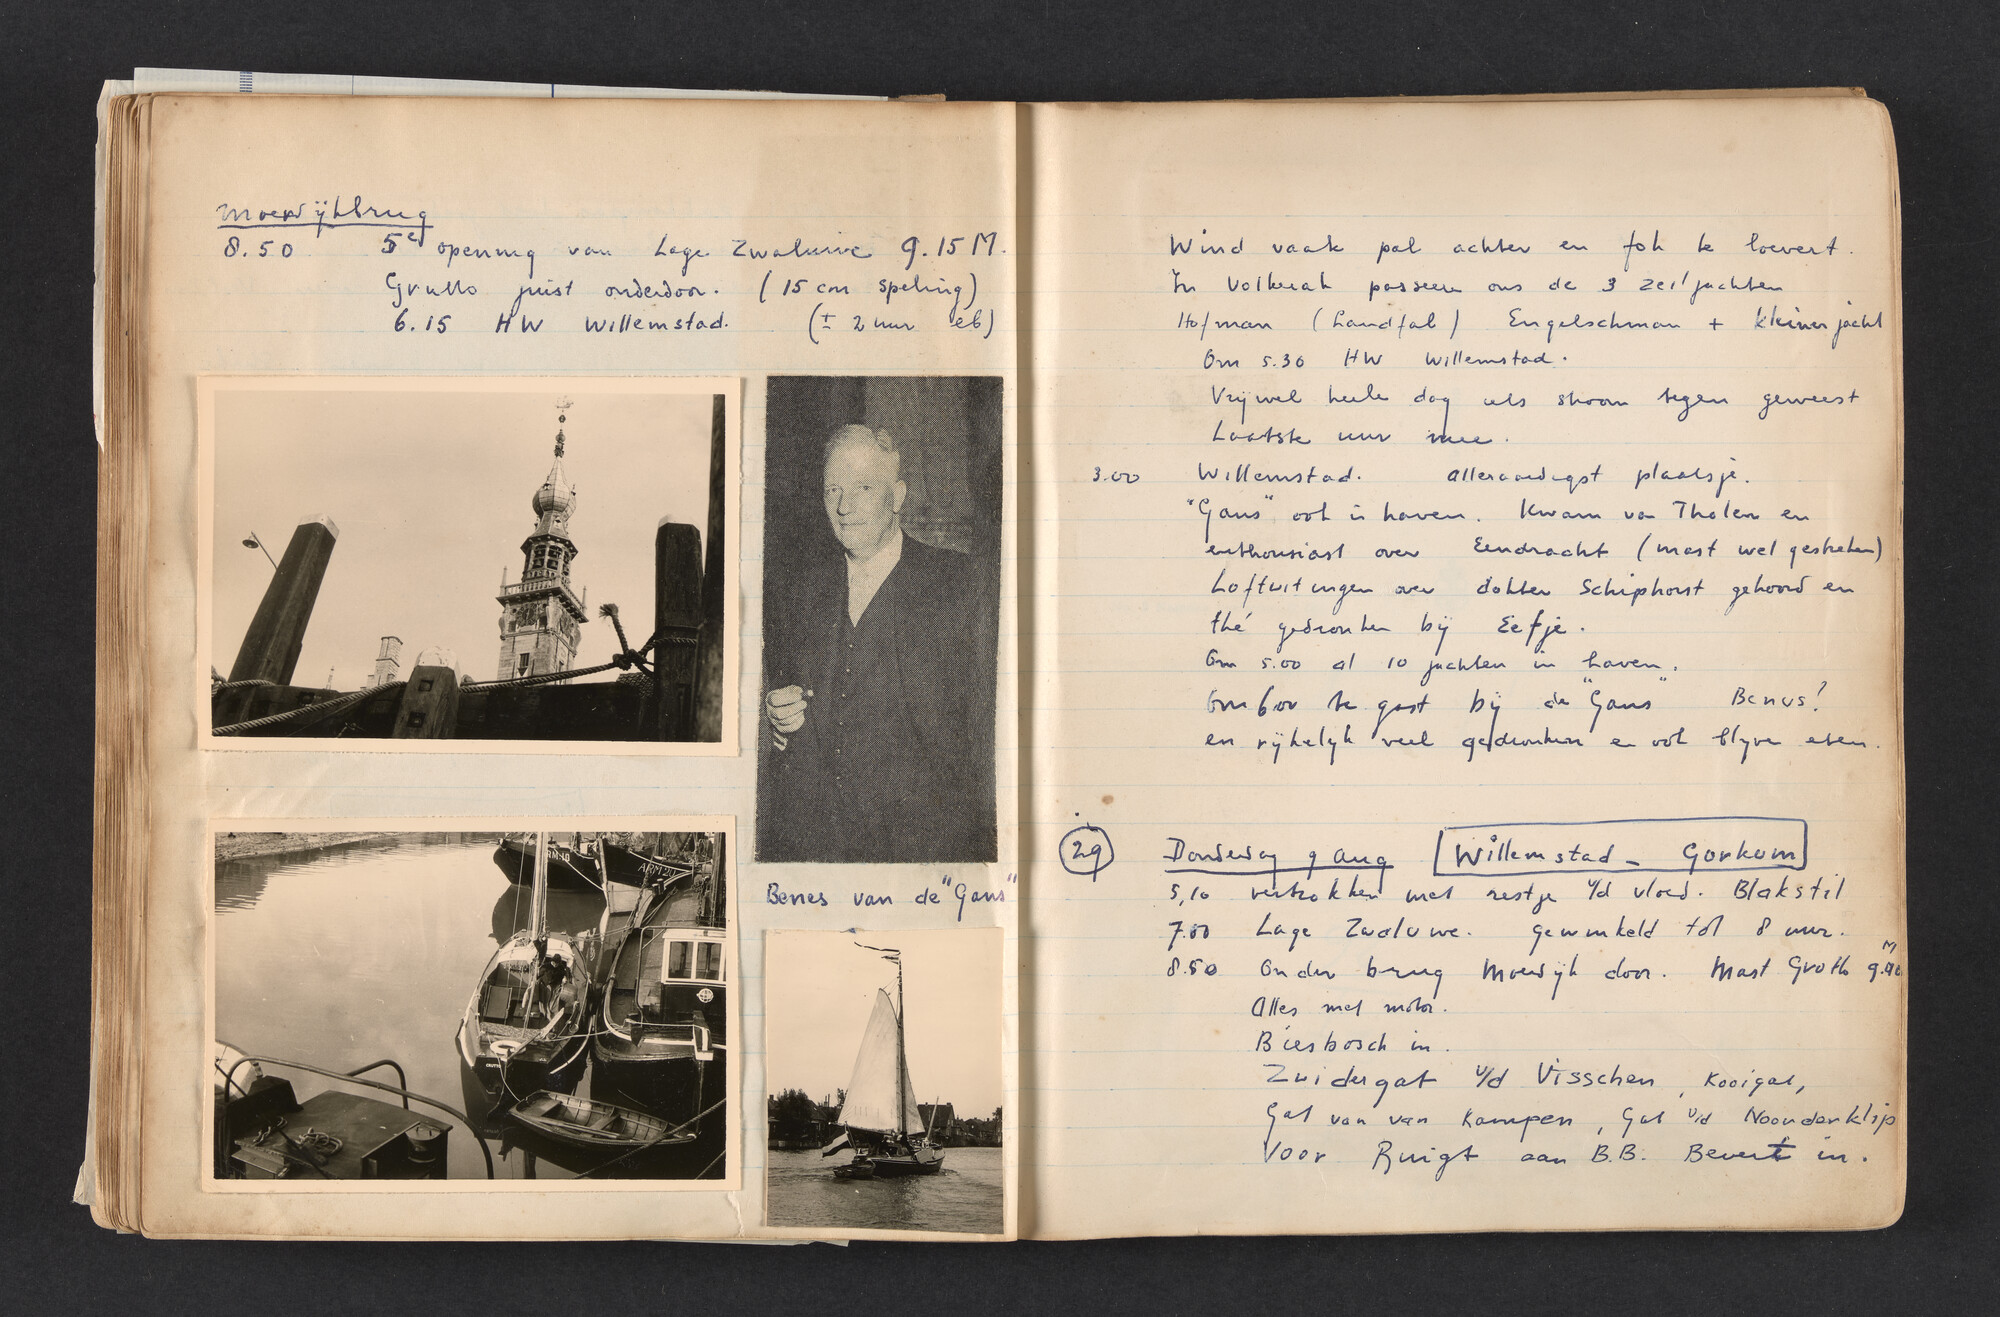 Moerdijkbrug
8.50 5e opening van Lage Zwaluwe 9.15 M.
Grutto juist onderdoor. (15 cm speling)
6.15 HW Willemstad. (± 2 uur eb)
ARM 18
ARM 20
Benes van de "Gans"
Wind vaak pal achter en fok te loevert.
In Volkerak passeren ons de 3 zeiljachten
Hofman (Landfal) Engelschman + kleiner jacht
Om 5.30 HW Willemstad.
Vrijwel heele dag als stroom tegen geweest
Laatste uur mee.
3.00 Willemstad. Alleraardigst plaatsje.
"Gans" ook in haven. Kwam van Tholen en
enthousiast over Eendracht (mast wel gestreken)
Loftuitingen over dokter Schiphorst gehoord en
thé gedronken bij Eefje.
Om 5.00 al 10 jachten in haven.
Om 6.00 te gast bij de "Gans" Benes!
en rijkelijk veel gedronken en ook blijven eten.
29 Donderdag 9 Aug Willemstad - Gorkum
5,10 vertrokken met restje v/d vloed. Blakstil
7.00 Lage Zwaluwe. gewinkeld tot 8 uur.
8.50 Onder brug Moerdijk door. Mast Grutto M
Alles met motor.
Biesbosch in.
Zuidergat v/d Visschen, Kooigat,
Gat van van Kampen, Gat v/d Noorderklip
Voor Ruigt aan B.B. Bevert in.